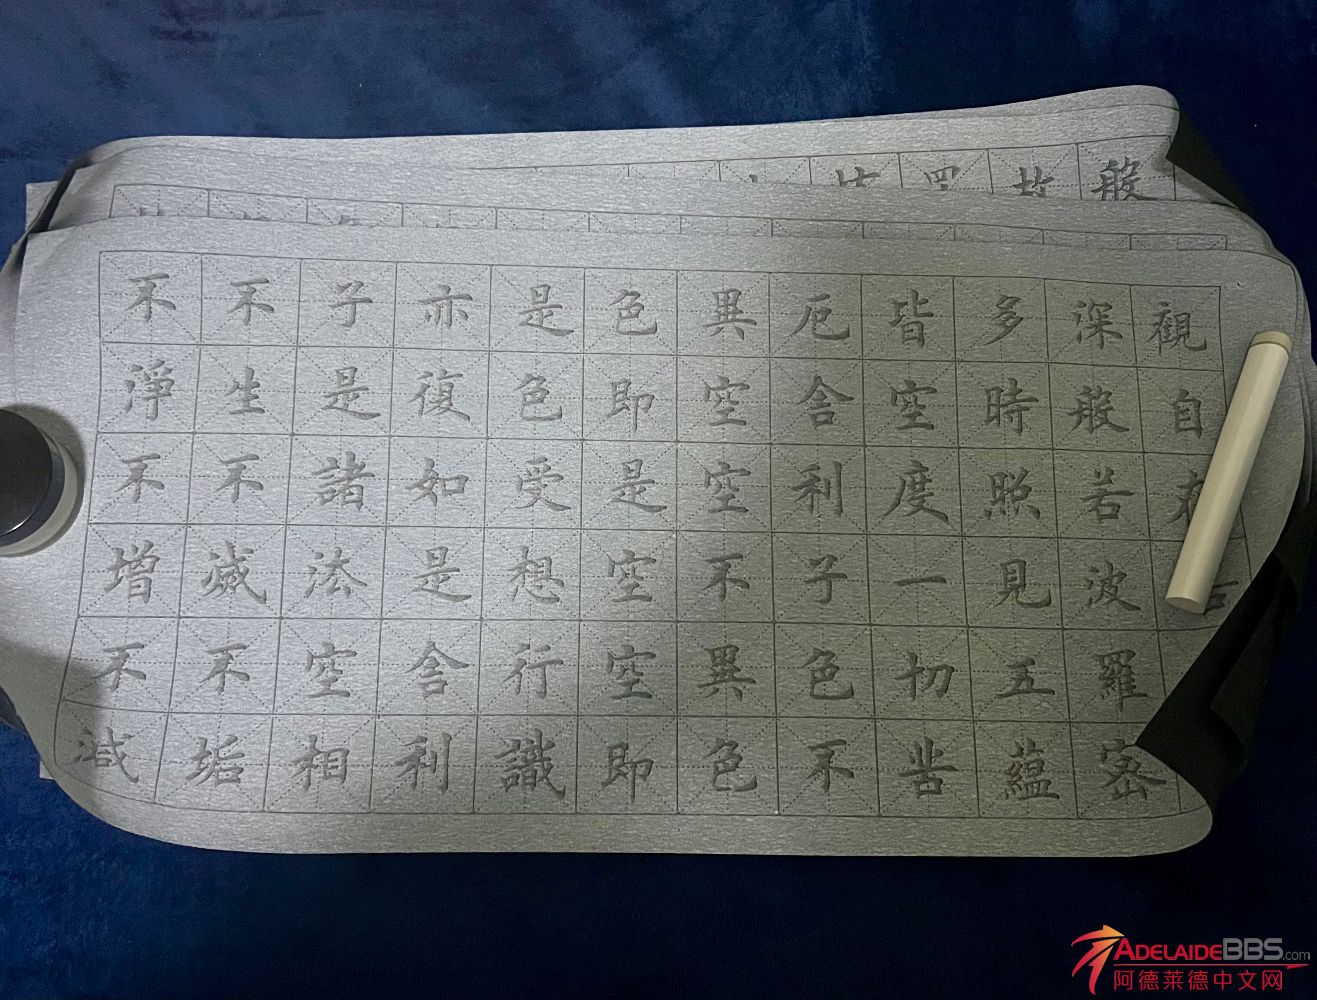 般
觀自
深般若波羅密
多時照見五蘊
皆空度一切苦
厄舍利子色不
異空空不異色
色即是空空即
是色受想行識
亦復如是舍利
子是諸法空相
不生不滅不垢
不淨不增不減
ADELAIDEBBS.com
阿德莱德中文网